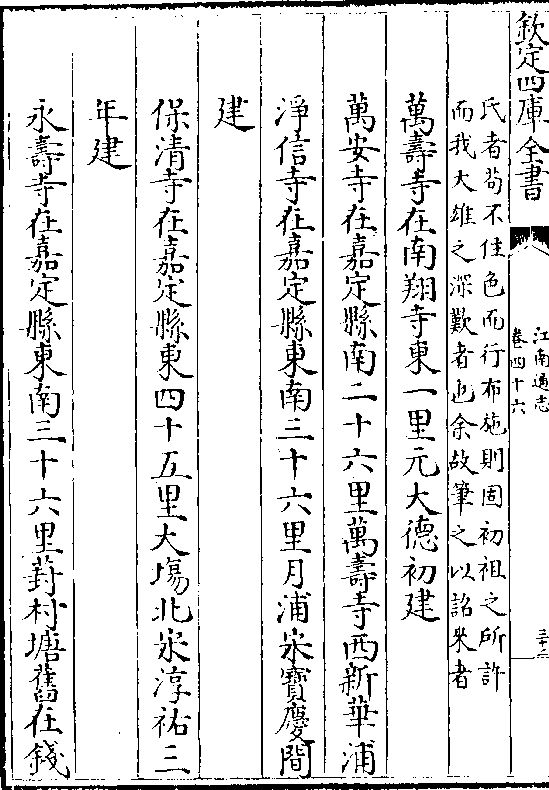 欽定四庫全書
江南通志
卷四十六
三十二
氏者茍不住色而行布施則固初祖之所許
而我大雄之深歎者也余故筆之以詔來者
萬壽寺在南翔寺東一里元大德初建
萬安寺在嘉定縣南二十六里萬壽寺西新華浦
淨信寺在嘉定縣東南三十六里月浦宋寶慶間
建
保清寺在嘉定縣東四十五里大場北宋淳祐三
年建
永壽寺在嘉定縣東南三十六里葑村塘舊在錢